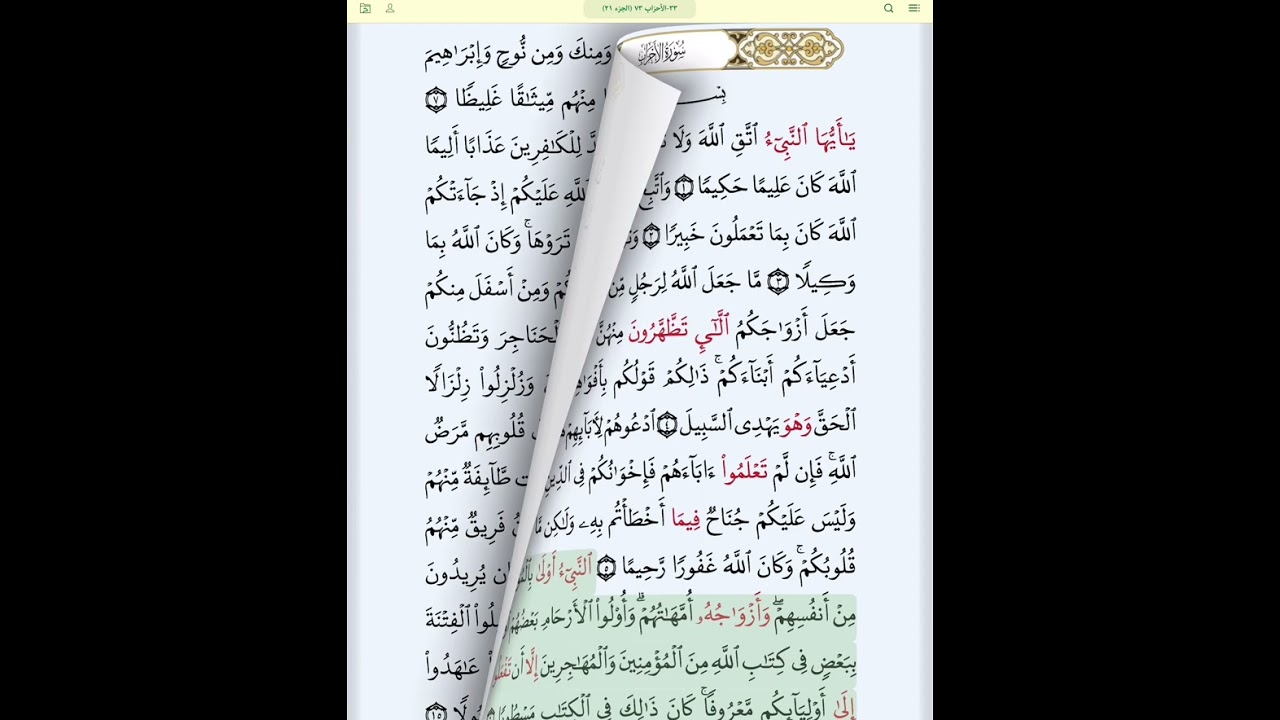 ٣٣-الأحزاب ٧٣ (الجزء ٢١)
سُورَةُ الأَحْزَابِ
يَـٰٓأَيُّهَا ٱلنَّبِيٓءُ ٱتَّقِ ٱللَّهَ وَلَا
ٱللَّهَ كَانَ عَلِيمًا حَكِيمًا ١ وَٱتَّبِعْ
ٱللَّهَ كَانَ بِمَا تَعْمَلُونَ خَبِيرًا ٢
وَكِيلًا ٣ مَّا جَعَلَ ٱللَّهُ لِرَجُلٍ مِّن
جَعَلَ أَزْوَٰجَكُمُ ٱلَّـٰٓـِٔي تَظَّهَّرُونَ مِنْهُنَّ
أَدْعِيَآءَكُمْ أَبْنَآءَكُمْ ۚ ذَٰلِكُمْ قَوْلُكُم بِأَفْوَٰهِ
ٱلْحَقَّ وَهْوَ يَهْدِى ٱلسَّبِيلَ ٤ ٱدْعُوهُمْ لِأَبَآئِهِمْ
ٱللَّهِ ۚ فَإِن لَّمْ تَعْلَمُوا۟ ءَابَآءَهُمْ فَإِخْوَٰنُكُمْ فِى ٱلدِّينِ
وَلَيْسَ عَلَيْكُمْ جُنَاحٌ فِيمَا أَخْطَأْتُم بِهِۦ وَلَـٰكِن مَّا
قُلُوبُكُمْ ۚ وَكَانَ ٱللَّهُ غَفُورًا رَّحِيمًا ٥ ٱلنَّبِيٓءُ أَوْلَىٰ
مِنْ أَنفُسِهِمْ ۖ وَأَزْوَٰجُهُۥ أُمَّهَـٰتُهُمْ ۗ وَأُو۟لُوا۟ ٱلْأَرْحَامِ بَعْضُهُمْ
بِبَعْضٍ فِى كِتَـٰبِ ٱللَّهِ مِنَ ٱلْمُؤْمِنِينَ وَٱلْمُهَـٰجِرِينَ إِلَّا أَن تَفْعَلُوا۟
إِلَىٰ أَوْلِيَآئِكُم مَّعْرُوفًا ۚ كَانَ ذَٰلِكَ فِى ٱلْكِتَـٰبِ مَسْطُورًا
وَمِنكَ وَمِن نُّوحٍ وَإِبْرَٰهِيمَ
مِنْهُم مِّيثَـٰقًا غَلِيظًا ٧
لِلْكَـٰفِرِينَ عَذَابًا أَلِيمًا
ٱللَّهِ عَلَيْكُمْ إِذْ جَآءَتْكُمْ
تَرَوْهَا ۚ وَكَانَ ٱللَّهُ بِمَا
وَمِنْ أَسْفَلَ مِنكُمْ
ٱلْحَنَاجِرَ وَتَظُنُّونَ
وَزُلْزِلُوا۟ زِلْزَالًا
قُلُوبِهِم مَّرَضٌ
طَّآئِفَةٌ مِّنْهُمْ
فَرِيقٌ مِّنْهُمُ
يُرِيدُونَ
ٱلْفِتْنَةَ
عَـٰهَدُوا۟
١٥